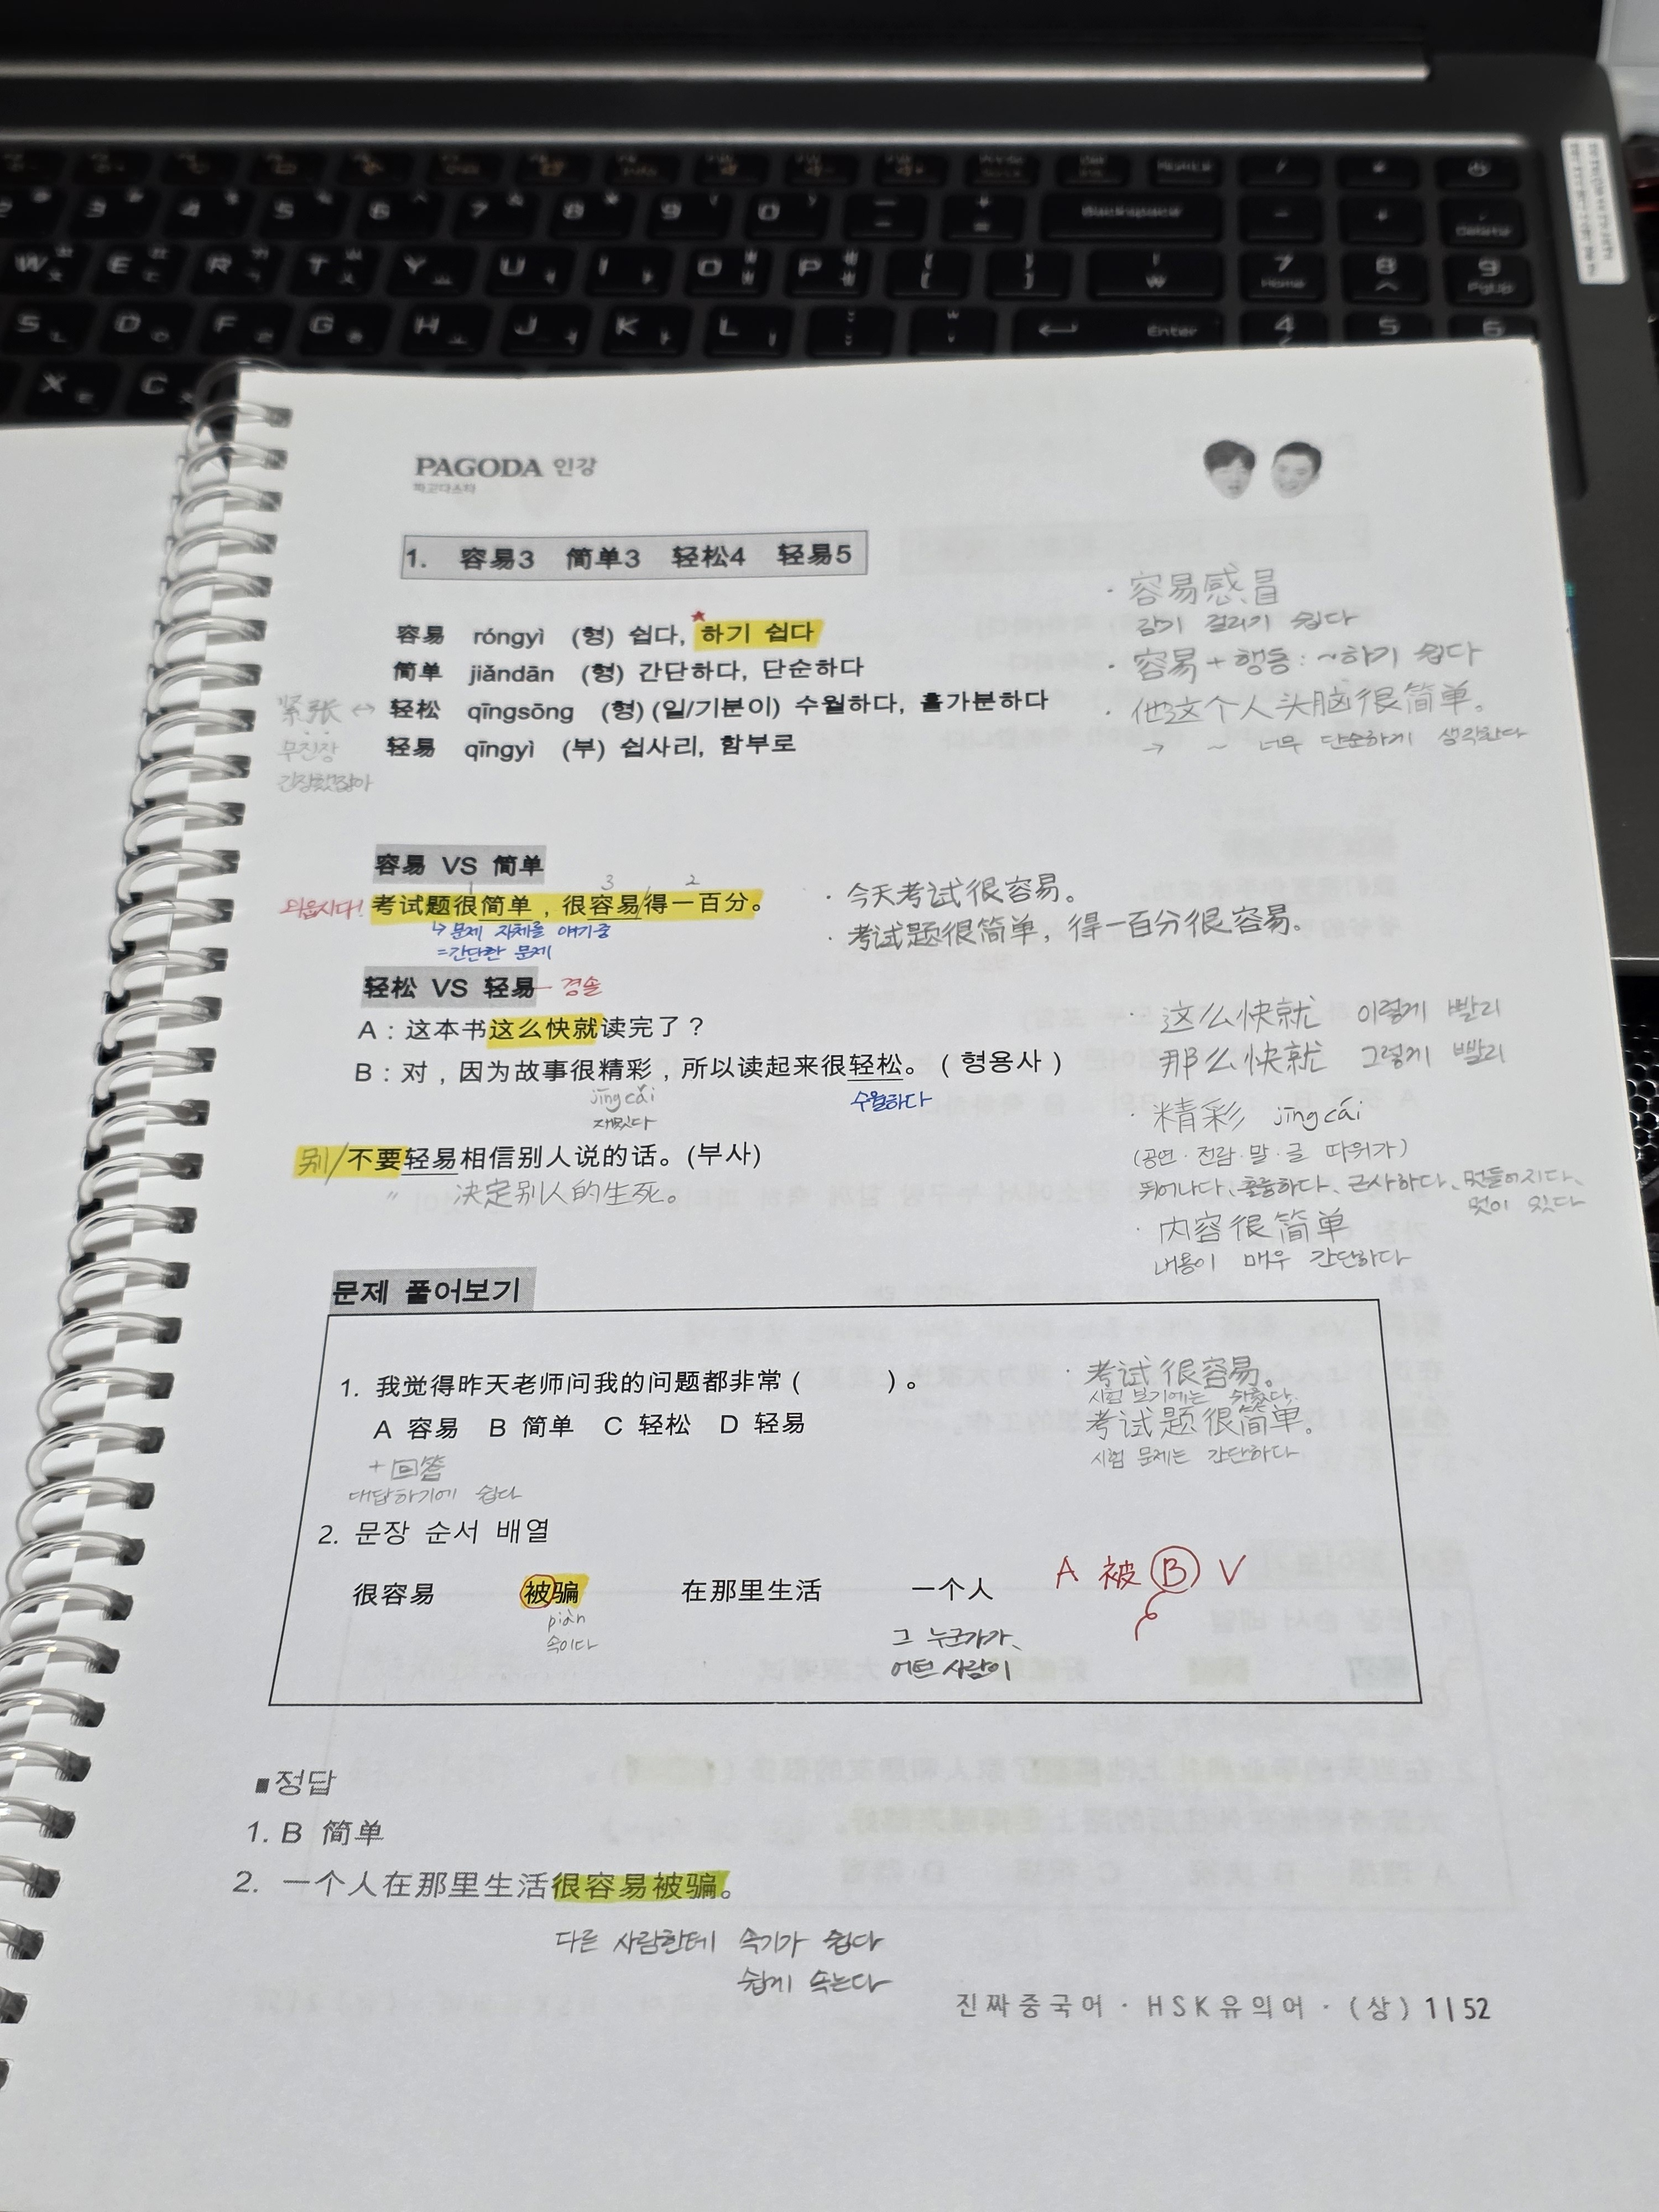 PAGODA 인강
파고다스타
1. 容易3 简单3 轻松4 轻易5
容易 róngyì (형) 쉽다, 하기 쉽다
简单 jiǎndān (형) 간단하다, 단순하다
紧张 ↔ 轻松 qīngsōng (형) (일/기분이) 수월하다, 홀가분하다
무진장
轻易 qīngyì (부) 쉽사리, 함부로
긴장했잖아
· 容易感冒
감기 걸리기 쉽다
· 容易 + 행동 : ~하기 쉽다
· 他这个人头脑很简单。
→ ~ 너무 단순하게 생각한다
容易 VS 简单
1 3 2
외웁시다! 考试题很简单，很容易/得一百分。
↳ 문제 자체를 얘기중
= 간단한 문제
· 今天考试很容易。
· 考试题很简单, 得一百分很容易。
轻松 VS 轻易 - 경솔
A：这本书这么快就读完了？
B：对，因为故事很精彩，所以读起来很轻松。（형용사）
jīngcǎi
재밌다
수월하다
别/不要轻易相信别人说的话。(부사)
〃 决定别人的生死。
· 这么快就 이렇게 빨리
那么快就 그렇게 빨리
· 精彩 jīngcǎi
(공연·전람·말·글 따위가)
뛰어나다、훌륭하다、근사하다、멋들어지다、
멋이 있다
· 内容很简单
내용이 매우 간단하다
문제 풀어보기
1. 我觉得昨天老师问我的问题都非常（ ）。
A 容易 B 简单 C 轻松 D 轻易
+ 回答
대답하기에 쉽다
· 考试很容易。
시험 보기에는 쉬웠다.
考试题很简单。
시험 문제는 간단하다
2. 문장 순서 배열
很容易 被骗 在那里生活 一个人
piàn
속이다
그 누군가가、
어떤 사람이
A 被 B V
■정답
1. B 简单
2. 一个人在那里生活很容易被骗。
다른 사람한테 속기가 쉽다
쉽게 속는다
진짜중국어 · HSK유의어 · (상) 1|52
W E R T Y U I O P
S D F G H J K L
X C
Backspace
Enter
7 8 9
Home PgUp
4 5 6
Delete